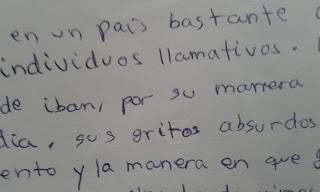 en un país bastante
individuos llamativos.
de iban, por su manera
día, sus gritos absurdos
ento y la manera en que